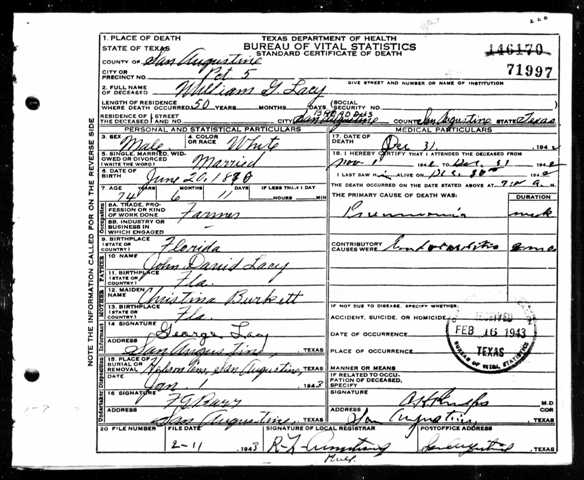 TEXAS DEPARTMENT OF HEALTH
BUREAU OF VITAL STATISTICS
STANDARD CERTIFICATE OF DEATH
146170
71997
1. PLACE OF DEATH
STATE OF TEXAS
COUNTY OF San Augustine
CITY OR PRECINCT NO. Pct 5
GIVE STREET AND NUMBER OR NAME OF INSTITUTION
2. FULL NAME OF DECEASED William G Lacy
LENGTH OF RESIDENCE WHERE DEATH OCCURRED 50 YEARS MONTHS
SOCIAL SECURITY NO.
RESIDENCE OF THE DECEASED STREET AND
CITY San Augustine COUNTY San Augustine STATE Texas
PERSONAL AND STATISTICAL PARTICULARS
3. SEX Male
4. COLOR OR RACE White
5. SINGLE, MARRIED, WIDOWED OR DIVORCED (WRITE THE WORD) Married
6. DATE OF BIRTH June 20, 18
7. AGE 74 6 11
IF LESS THAN 1 DAY
HOURS MIN
8A. TRADE, PROFESSION OR KIND OF WORK DONE Farmer
8B. INDUSTRY OR BUSINESS IN WHICH ENGAGED -
9. BIRTHPLACE (STATE OR COUNTRY) Florida
10 NAME John David Lacy
11. BIRTHPLACE (STATE OR COUNTRY) Fla.
12. MAIDEN NAME Christina Burkett
BIRTHPLACE (STATE OR COUNTRY) Fla.
14 SIGNATURE George Lacy
ADDRESS San Augustine, TEXAS
15. PLACE OF BURIAL OR REMOVAL San Augustine, TEXAS
DATE Jan 1 1943
16 SIGNATURE
ADDRESS San Augustine, TEXAS
MEDICAL PARTICULARS
17. DATE OF DEATH Dec 31, 194
18. I HEREBY CERTIFY THAT I ATTENDED THE DECEASED FROM
Nov 1 194 TO Dec. 31 194
I LAST SAW H ALIVE ON Dec 30 194
THE DEATH OCCURRED ON THE DATE STATED ABOVE AT M.
THE PRIMARY CAUSE OF DEATH WAS:
DURATION
Pneumonia week
CONTRIBUTORY CAUSES WERE Endocarditis
IF NOT DUE TO DISEASE, SPECIFY WHETHER:
ACCIDENT, SUICIDE, OR HOMICIDE
DATE OF OCCURRENCE
PLACE OF OCCURRENCE
MANNER OR MEANS
IF RELATED TO OCCUPATION OF DECEASED, SPECIFY
SIGNATURE M.D
COR
ADDRESS San Augustine TEXAS
RECEIVED
FEB 16 1943
TEXAS
BUREAU OF VITAL STATISTICS
20 FILE NUMBER
FILE DATE 2-11 1943
SIGNATURE OF LOCAL REGISTRAR R. L. Armstrong
POSTOFFICE ADDRESS San Augustine TEXAS
NOTE THE INFORMATION CALLED FOR ON THE REVERSE SIDE